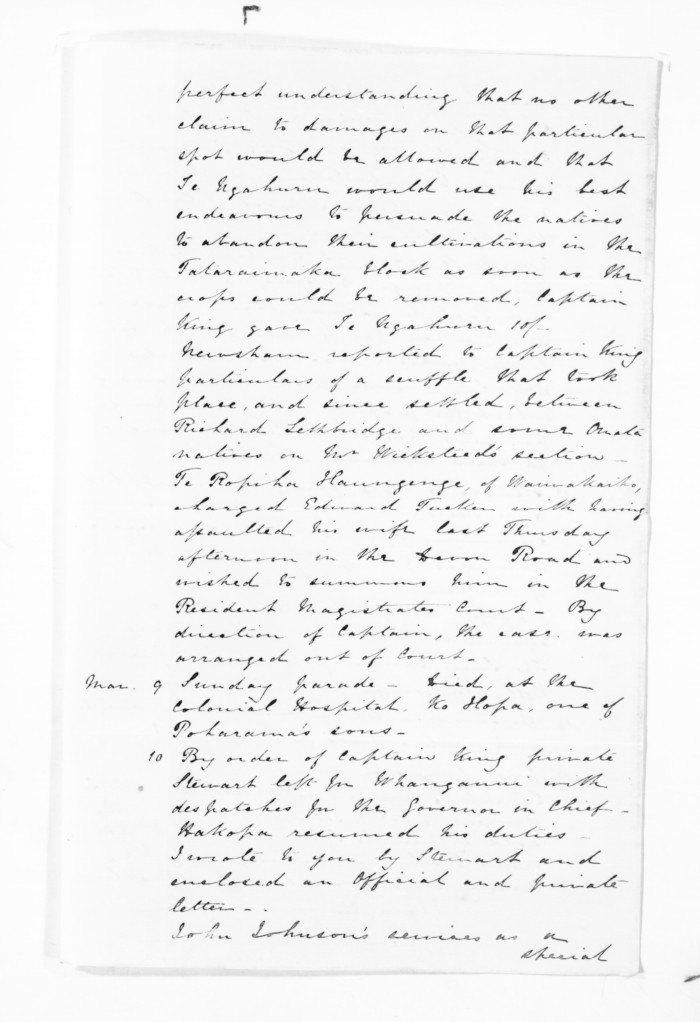 perfect understanding that no other
claim to damages on that particular
spot would be allowed and that
Te Ngahuru would use his best
endeavours to persuade the natives
to abandon their cultivations in the
Tataraimaka block as soon as the
crops could be removed, Captain
King gave Te Ngahuru 10/-
Newsham reported to Captain King
particulars of a scuffle that took
place, and since settled, between
Richard Lethbridge and some Omata
natives on Mr Wicksteed's section -
Te Ropiha Haungenge, of Waiwakaiho,
charged Edward Tucker with having
assaulted his wife last Thursday
afternoon in the Devon Road and
wished to summons him in the
Resident Magistrates Court - By
direction of Captain, the case. was
arranged out of Court -
Mar. 9 Sunday parade - Died, at the
Colonial Hospital, Ko Hopa, one of
Poharama's sons -
10 By order of Captain King private
Stewart left for Whanganui with
despatches for the Governor in Chief -
Hakopa resumed his duties -
I wrote to you by Stewart and
enclosed an Official and private
letter - .
John Johnson's services as a
special